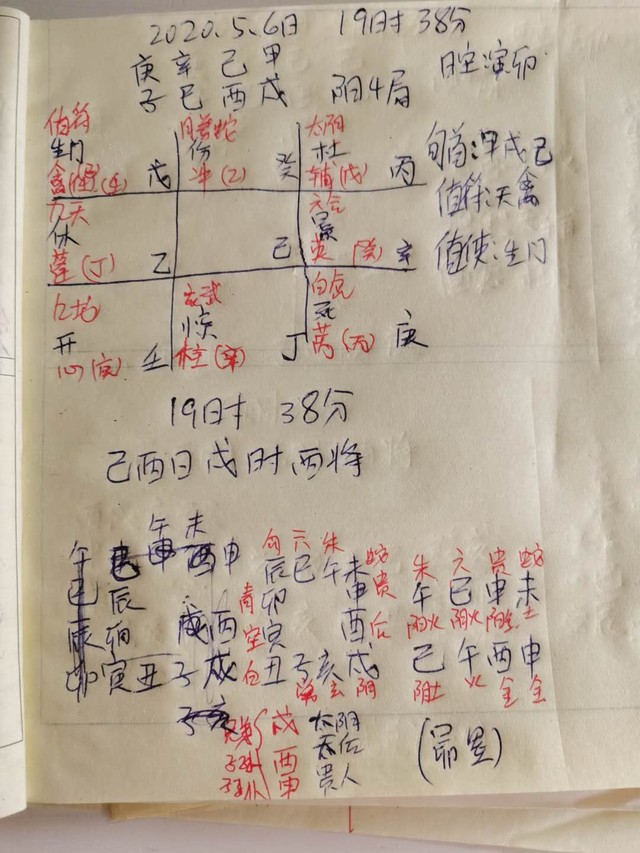 2020.5.6日 19时38分
庚 辛 己 甲
子 巳 酉 戌 阳4局
值符 腾蛇 太阴
生门 伤 杜
戊 冲(乙) 癸 辅(戊) 丙
旬首:甲戌己
值符:天禽
值使:生门
九天 六合
休 景
蓬(丁) 乙 己 英(癸) 辛
九地 玄武 白虎
开 惊 死
心(庚) 壬 柱(辛) 丁 芮(丙) 庚
19时 38分
己酉日戌时酉将
午 未
午 申
巳 辰
辰 卯 酉
卯 寅 丑 子 戌
勾 六 朱 蛇
辰 巳 午 未
青 卯 申 贵
空 寅 酉 后
白 丑 子 亥 戌
常 玄 阴
朱 六 贵 蛇
午 巳 申 未
阳火 阴火 阳金 土
己 午 酉 申
阴土 火 金 金
兄弟 戌 太阴
子孙 酉 天后
子孙 申 贵人
(昴星)